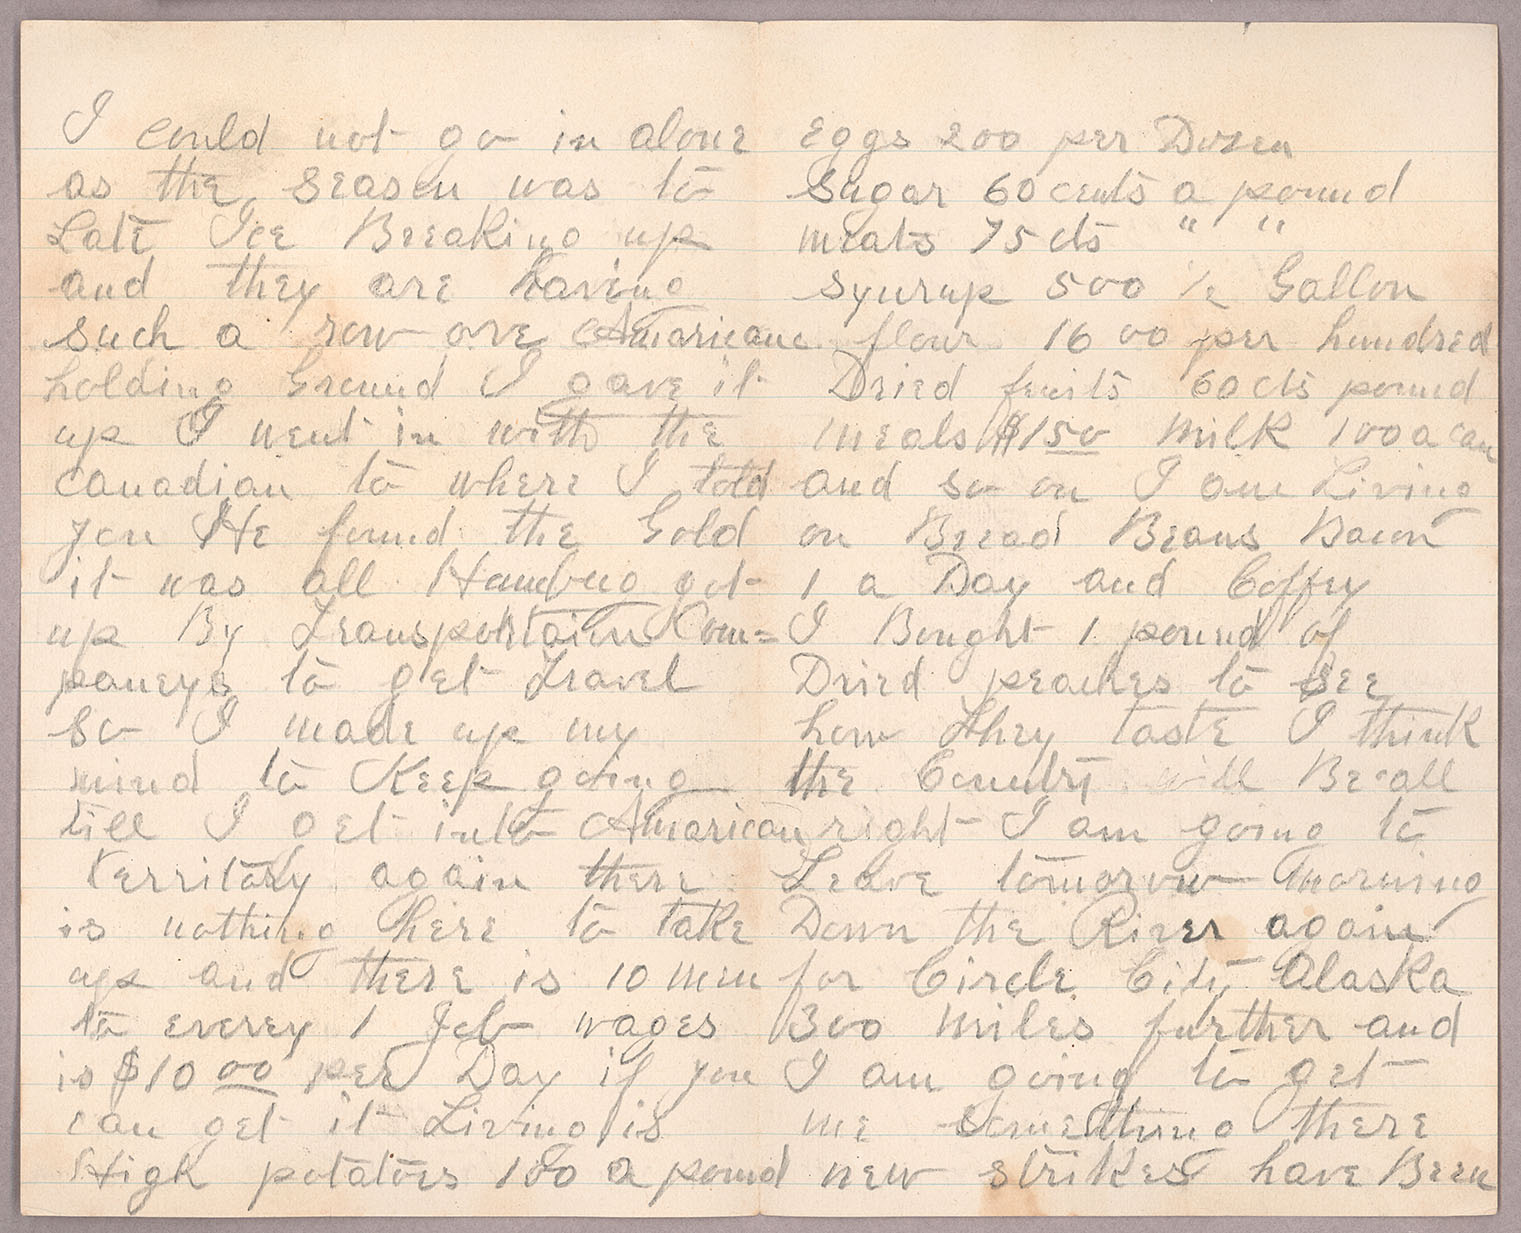 I could not go in alone
as the season was to
Late Ice Breaking up
and they are having
such a row ove Amaricans
holding Ground I gave it
up I went in with the
canadian to where I told
you He found the Gold
it was all Humbug got
up By Transportation Com=
paneys to get Travel
so I made up my
mind to Keep going
till I get into Amarican
Territory again there
is nothing here to take
up and there is 10 men
to everey 1 Job wages
is $10 00 per Day if you
can get it Living is
High potatoes 100 a pound
Eggs 200 per Dozen
Sugar 60 cents a pound
meats 75 cts " "
Syurup 500 1/2 Gallon
flour 16 00 per hundred
Dried fruits 60 cts pound
meals $1 50 Milk 100 a can
and so on I am Living
on Bread Beans Bacon
1 a Day and Coffey
I Bought 1 pound of
Dried peaches to see
how they taste I think
the Country will Be all
right I am going to
Leave tomorow morning
Down the River again
for Circle City Alaska
300 miles further and
I am going to get
me something there
new strikes have Been